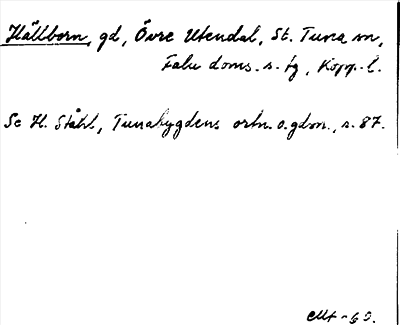 Hällborn, gd, Övre Utendal, St. Tuna sn,
Falu doms. s. tg, Kopp. l.
Se H. Ståhl, Tunabygdens ortn. o. gdsn., s. 87.